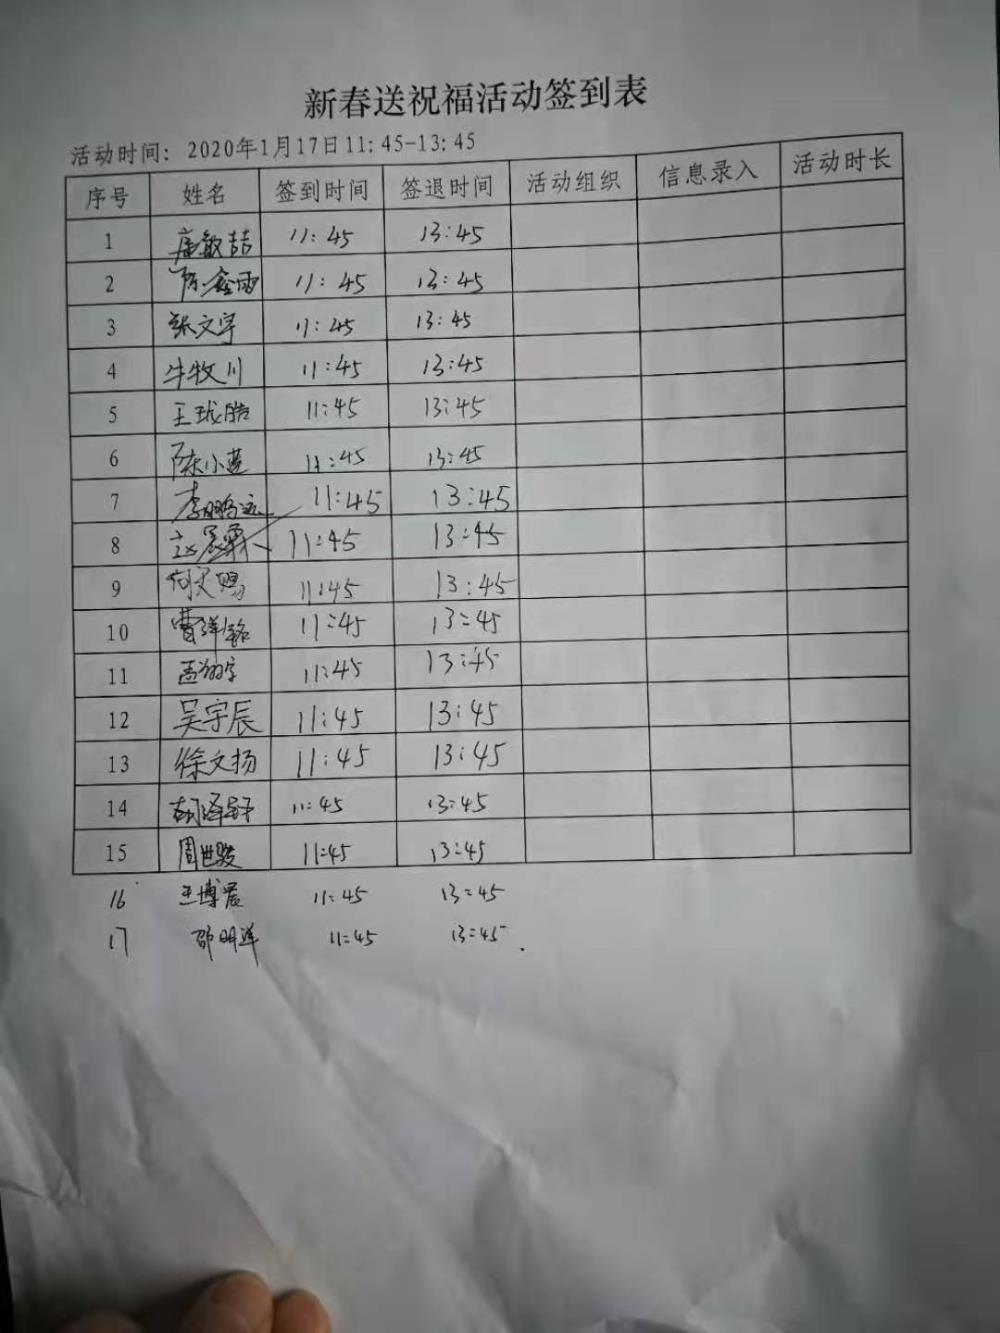 新春送祝福活动签到表
活动时间: 2020年1月17日11:45-13:45
序号 姓名 签到时间 签退时间 活动组织 信息录入 活动时长
1 11:45 13:45
2 陈鑫雨 11:45 13:45
3 张文宇 11:45 13:45
4 牛牧川 11:45 13:45
5 王珑皓 11:45 13:45
6 陈小莲 11:45 13:45
7 李鹏远 11:45 13:45
8 赵晨霖 11:45 13:45
9 何天赐 11:45 13:45
10 曹洋铭 11:45 13:45
11 孟翔宇 11:45 13:45
12 吴宇辰 11:45 13:45
13 徐文扬 11:45 13:45
14 胡泽轩 11:45 13:45
15 周世骏 11:45 13:45
16 王博君 11:45 13:45
17 邵明洋 11:45 13:45